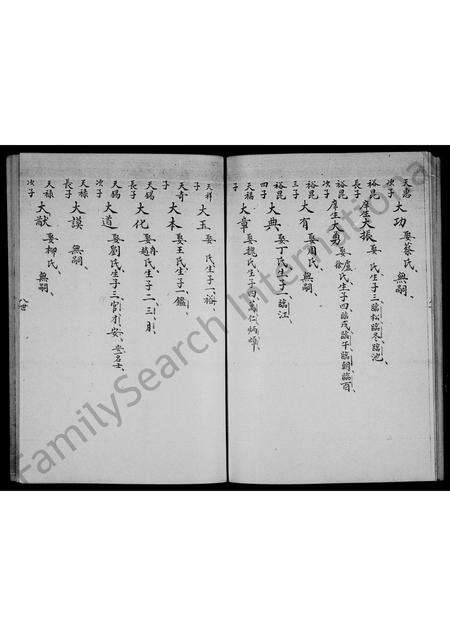 天惠次子 大功 娶蔡氏 無嗣、
裕昆長子 庠生大振 娶 氏生子三、臨松臨冬臨池、
裕昆次子 庠生大勇 娶盧徐氏生子四、臨戎臨千臨朝臨百、
裕昆三子 大有 娶周氏、無嗣、
裕昆四子 大典 娶丁氏生子一、臨江、
天福子 大章 娶魏氏生子四、仁炳焯、
天祥子 大玉 娶 氏生子一、裕、
天奇子 大本 娶王氏生子一、鑑、
天錫長子 大化 娶趙氏生子二、
天錫次子 大道 娶劉氏生子三、
天祿長子 大謨 無嗣、
天祿次子 大猷 娶柳氏、無嗣、
FamilySearch International